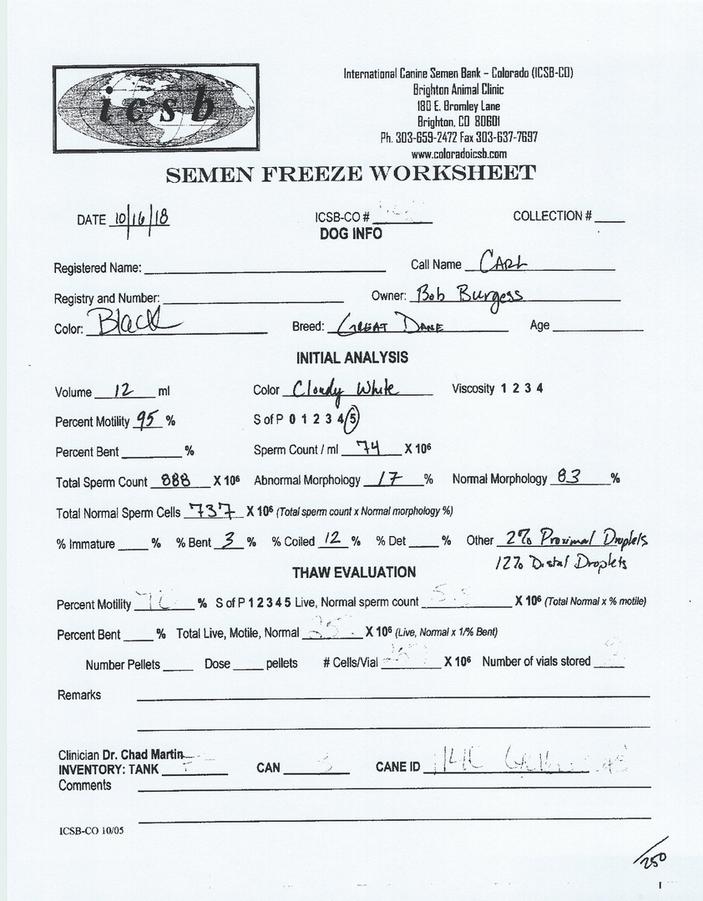 icsb
International Canine Semen Bank – Colorado (ICSB-CO)
Brighton Animal Clinic
180 E. Bromley Lane
Brighton, CO 80601
Ph. 303-659-2472 Fax 303-637-7697
www.coloradoicsb.com
SEMEN FREEZE WORKSHEET
DATE 10/16/18 ICSB-CO # COLLECTION #
DOG INFO
Registered Name: Call Name CARL
Registry and Number: Owner: Bob Burgess
Color: Black Breed: GREAT DANE Age
INITIAL ANALYSIS
Volume 12 ml Color Cloudy White Viscosity 1 2 3 4
Percent Motility 95 % S of P 0 1 2 3 4 5
Percent Bent % Sperm Count / ml 74 X 10⁶
Total Sperm Count 888 X 10⁶ Abnormal Morphology 17 % Normal Morphology 83 %
Total Normal Sperm Cells 737 X 10⁶ (Total sperm count x Normal morphology %)
% Immature % % Bent 3 % % Coiled 12 % % Det % Other 2% Proximal Droplets
12% Distal Droplets
THAW EVALUATION
Percent Motility % S of P 1 2 3 4 5 Live, Normal sperm count X 10⁶ (Total Normal x % motile)
Percent Bent % Total Live, Motile, Normal X 10⁶ (Live, Normal x 1/% Bent)
Number Pellets Dose pellets # Cells/Vial X 10⁶ Number of vials stored
Remarks
Clinician Dr. Chad Martin
INVENTORY: TANK CAN CANE ID
Comments
ICSB-CO 10/05
250